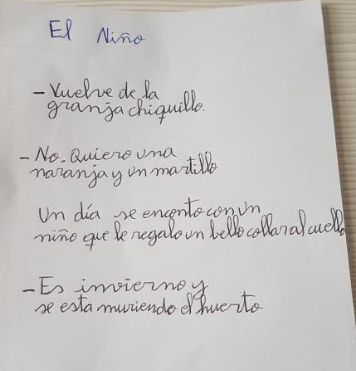 El Niño
- Vuelve de la
granja chiquillo.
- No. Quiero una
naranja y un martillo
Un día se enconto con un
niño que le regalo un bello collar al cuello
- Es invierno y
se esta muriendo el huerto